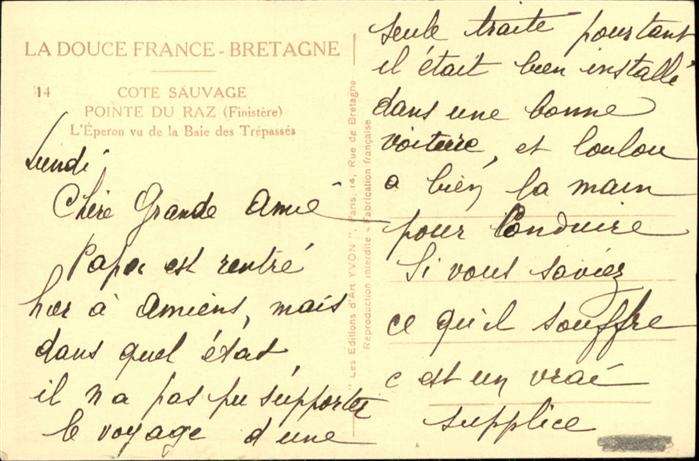 LA DOUCE FRANCE - BRETAGNE
14 COTE SAUVAGE
POINTE DU RAZ (Finistère)
L'Éperon vu de la Baie des Trépassés
Lundi
Chère Grande Amie
Papa est rentré
hier à Amiens, mais
dans quel état
il n a pas pu supporter
le voyage d'une
"Les Editions d'Art YVON", Paris, 14, Rue de Bretagne
Reproduction interdite - Fabrication française
seule traite pourtant
il était bien installé
dans une bonne
voiture, et loulou
a bien la main
pour Conduire
Si vous saviez
ce qu'il souffre
c est un vrai
supplice